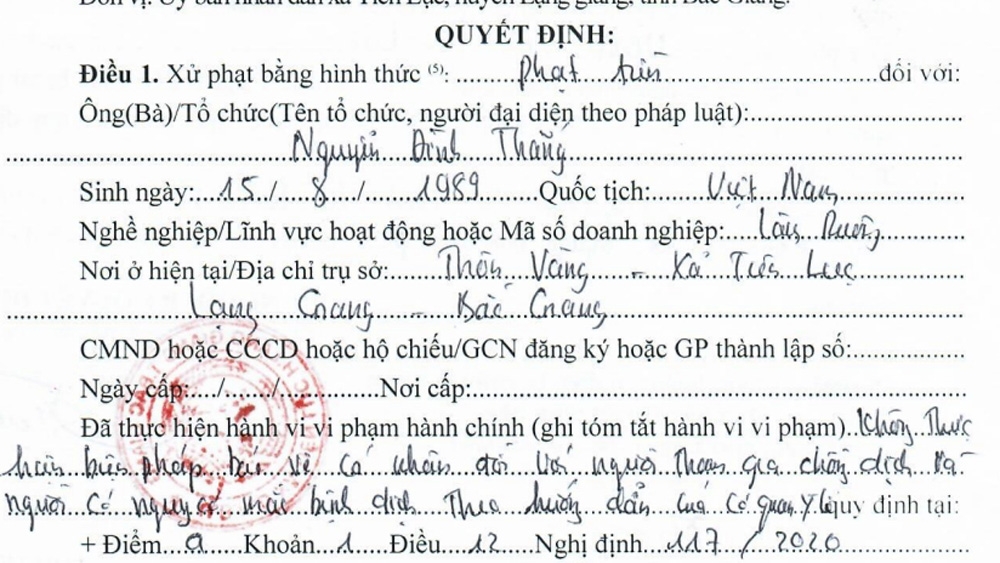 Đơn vị: Ủy ban nhân dân xã Tiên Lục, huyện Lạng giang, tỉnh Bắc Giang.
QUYẾT ĐỊNH:
Điều 1. Xử phạt bằng hình thức (5): phạt tiền đối với:
Ông(Bà)/Tổ chức(Tên tổ chức, người đại diện theo pháp luật):
Nguyễn Đình Thắng
Sinh ngày: 15 / 8 / 1989 Quốc tịch: Việt Nam
Nghề nghiệp/Lĩnh vực hoạt động hoặc Mã số doanh nghiệp: Làm Ruộng
Nơi ở hiện tại/Địa chỉ trụ sở: Thôn Vàng - Xã Tiên Lục
Lạng Giang - Bắc Giang
CMND hoặc CCCD hoặc hộ chiếu/GCN đăng ký hoặc GP thành lập số:
Ngày cấp: / / Nơi cấp:
Đã thực hiện hành vi vi phạm hành chính (ghi tóm tắt hành vi vi phạm) Không Thực
hiện biện pháp bảo vệ cá nhân đối với người Tham gia chống dịch và
người có nguy cơ mắc bệnh dịch Theo hướng dẫn của cơ quan y tế quy định tại:
+ Điểm a Khoản 1 Điều 12 Nghị định 117 / 2020